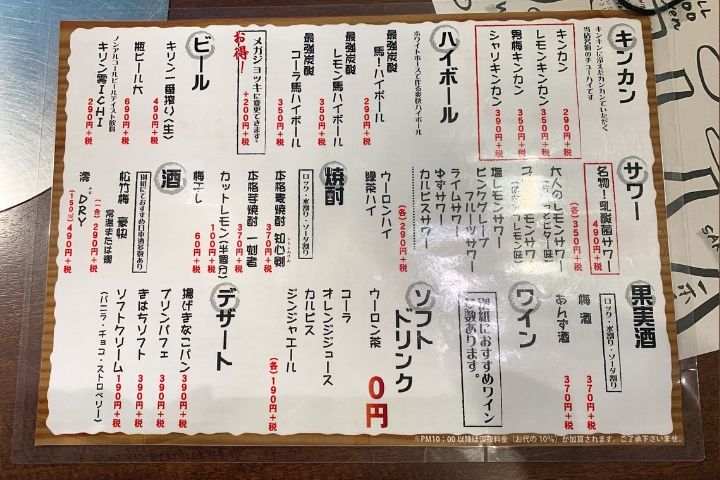 キンカン
キンキンに冷えたカンカンでいただく、
当店名物のチューハイです
キンカン 290円+税
レモンキンカン 350円+税
男梅キンカン 390円+税
シャリキンカン 390円+税
ハイボール
ホワイトホースで作る爽快ハイボール
最強炭酸
馬!ハイボール 290円+税
最強炭酸
レモン馬ハイボール 350円+税
最強炭酸
コーラ馬ハイボール 350円+税
メガジョッキに変更できます。 +200円+税
お得!
ビール
キリン一番搾り〈生〉 490円+税
瓶ビール大 690円+税
ノンアルコールビールテイスト飲料
キリン零ICHI 290円+税
サワー
名物!乳酸菌サワー 490円+税
大人のレモンサワー
(各)350円+税
塩レモンサワー
ピンクグレープ
フルーツサワー
ライムサワー
ゆずサワー
カルピスサワー
(各)290円+税
ウーロンハイ
緑茶ハイ
焼酎
ロック・水割り・ソーダ割り
本格麦焼酎 知心剣 370円+税
本格芋焼酎 一刻者 370円+税
カットレモン(半個分) 100円+税
梅干し 60円+税
酒
別紙にておすすめ日本酒多数あり
松竹梅 豪快
常温または燗
(一合)290円+税
澪 DRY
(150㎖)490円+税
果実酒
ロック・水割り・ソーダ割り
梅酒 370円+税
あんず酒 370円+税
ワイン
別紙におすすめワイン
多数あります。
ソフト
ドリンク
ウーロン茶 0円
コーラ
オレンジジュース
カルピス
ジンジャエール
(各)190円+税
デザート
揚げきなこパン 390円+税
プリンパフェ 390円+税
きはちソフト 390円+税
ソフトクリーム 190円+税
(バニラ・チョコ・ストロベリー)
※PM10:00以降は深夜料金(お代の10%)が加算されます。ご了承下さいませ。